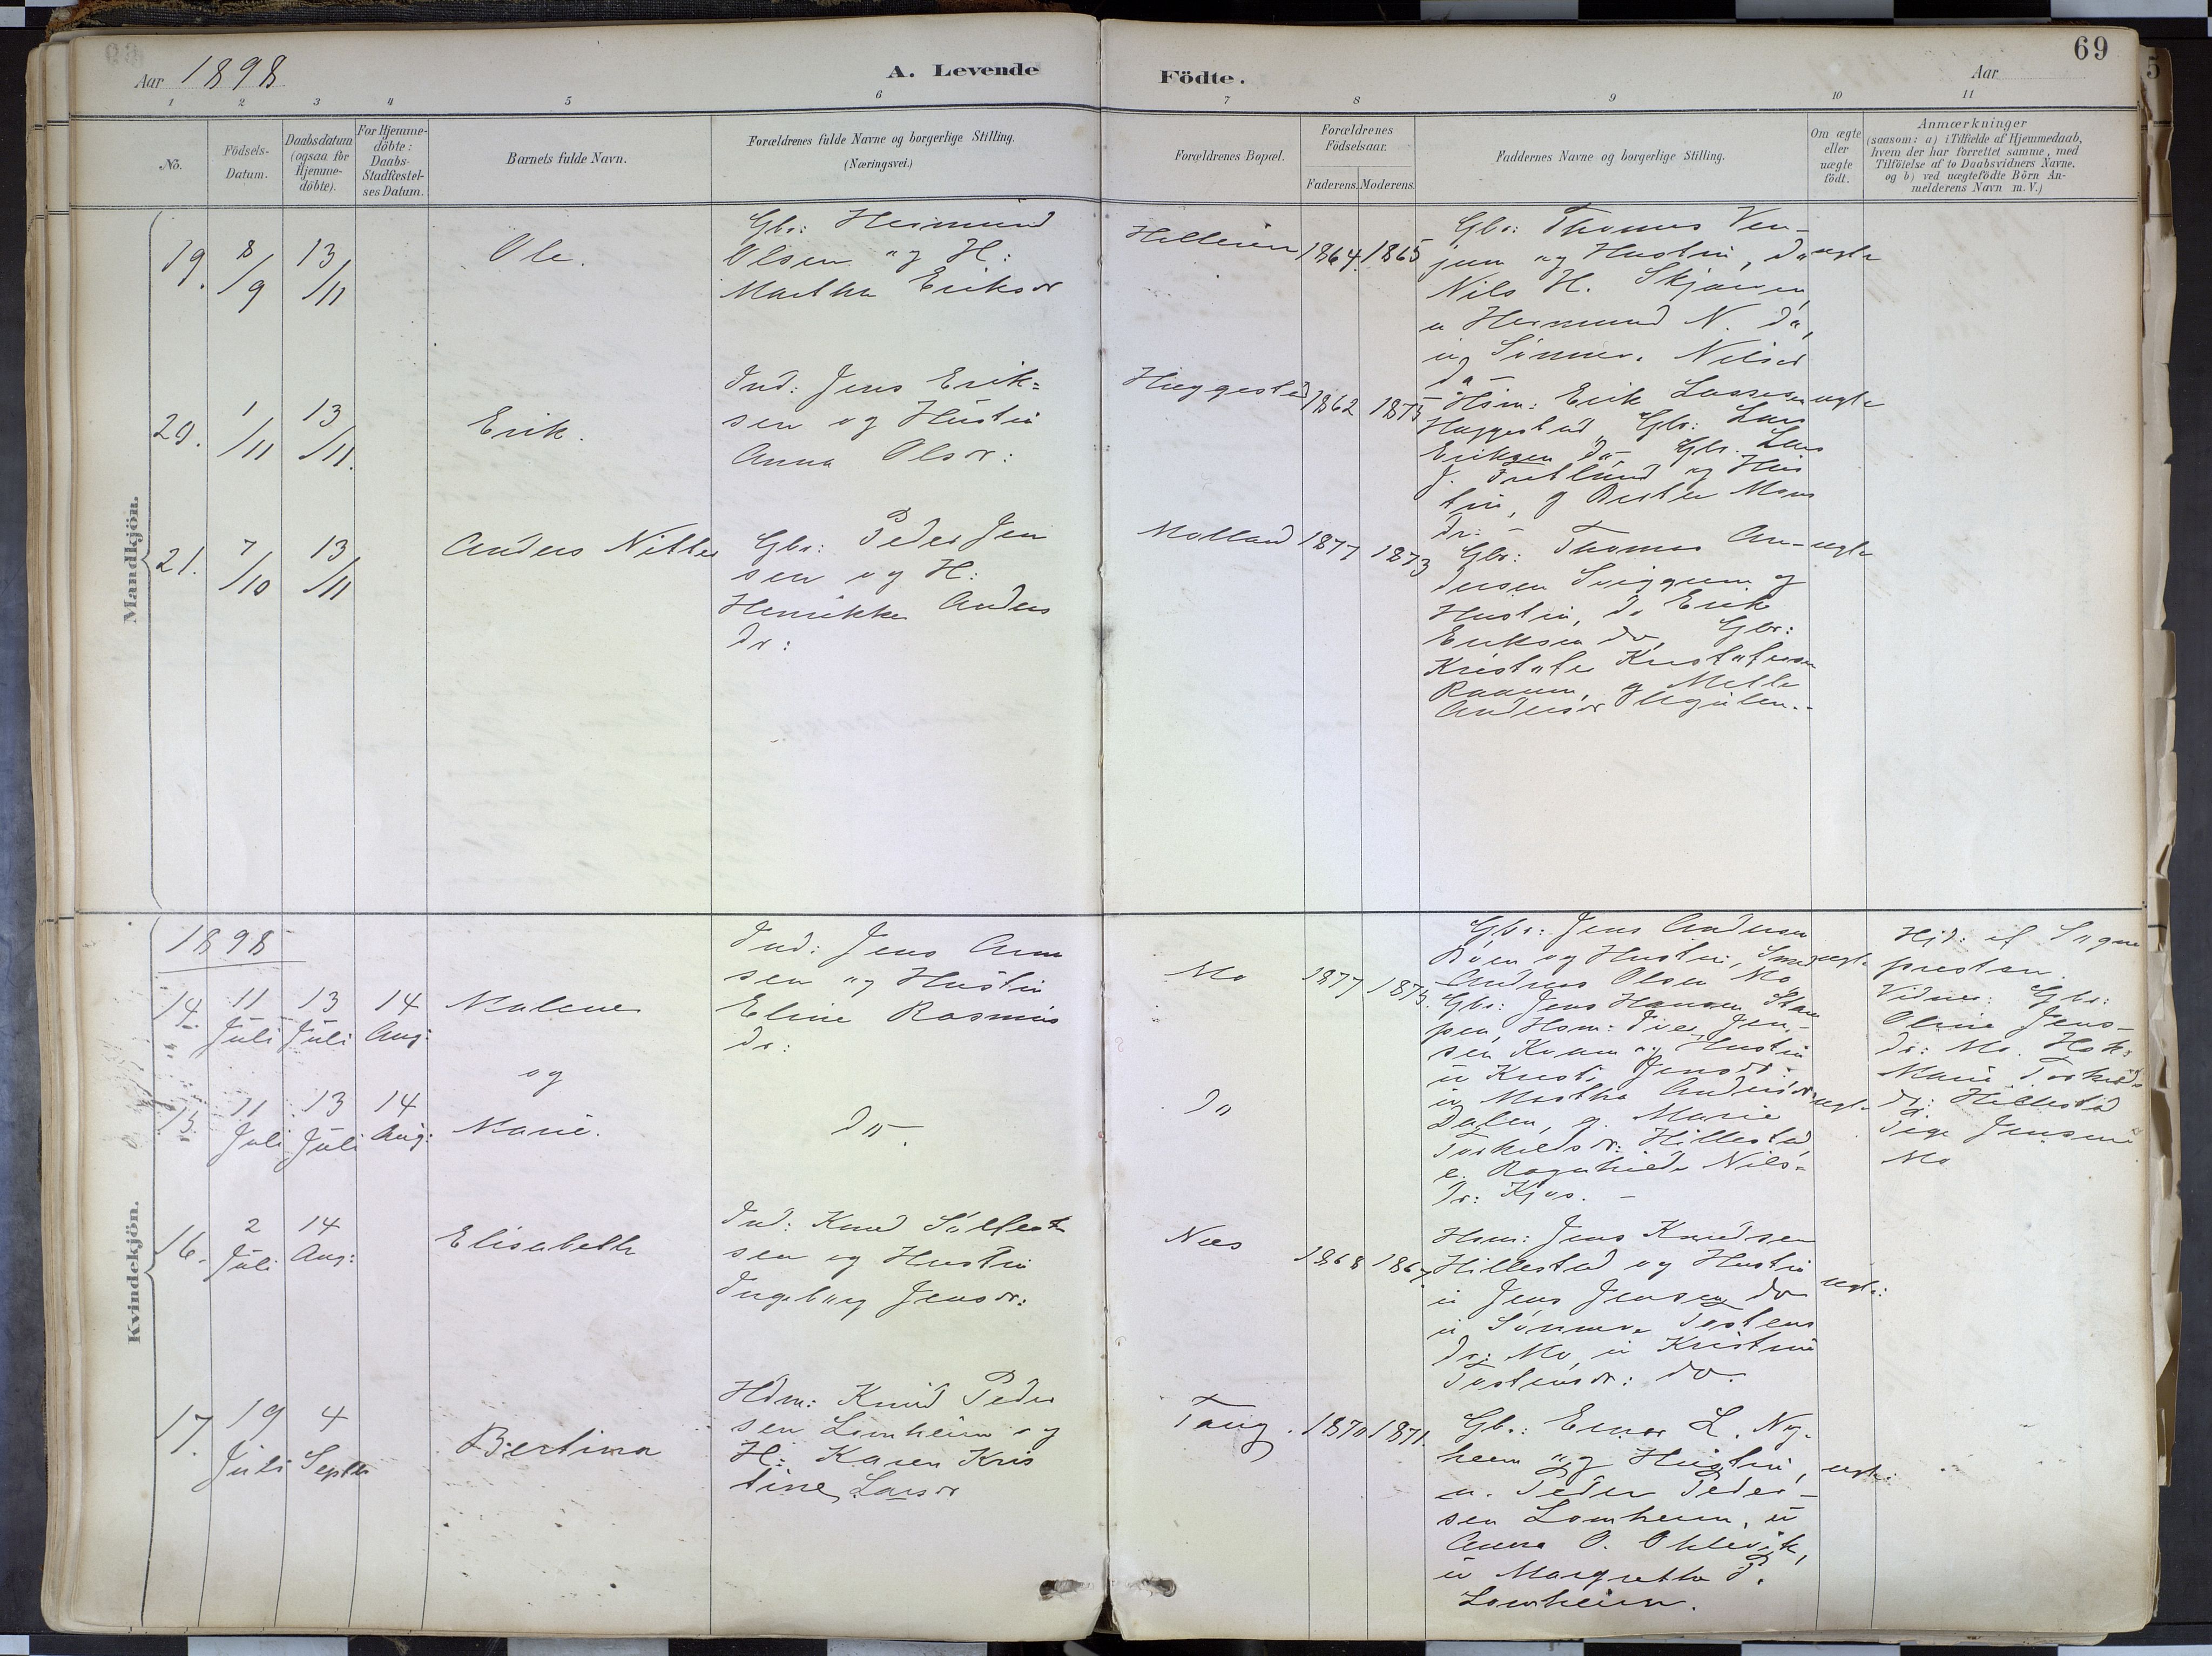 69
Aar 1898
A. Levende
Födte.
Aar
1 2 3 4 5 6 7 8 9 10 11
No.
Födsels-
Datum.
Daabsdatum
(ogsaa for
Hjemme-
döbte).
For Hjemme-
döbte:
Daabs-
Stadfæstel-
ses Datum.
Barnets fulde Navn.
Forældrenes fulde Navne og borgerlige Stilling.
(Næringsvei.)
Forældrenes Bopæl.
Forældrenes
Födselsaar.
Faderens. Moderens.
Faddernes Navne og borgerlige Stilling.
Om ægte
eller
uægte
födt.
Anmærkninger
(saasom: a) i Tilfælde af Hjemmedaab,
hvem der har forrettet samme, med
Tilföielse af to Daabsvidners Navne.
og b) ved uægtefödte Börn An-
melderens Navn m. V.)
Mandkjön.
19. 8/9 13/11
Ole.
Gbr: Hermund
Olsen og H:
Martha Eriksdr
1864. 1865
Gbr: Thomas Ven-
jum og Hustru, do
Nils H. Skjærven
u Hermund N. do,
u Sünneva Nilsdr
do
ægte
20. 1/11 13/11.
Erik.
Ind: Jens Erik=
sen og Hustru
Anna Olsdr:
Hæggestad
1862 1875
Hsm: Erik Larssen
Hæggestad, Gbr: Lars
Eriksen do, Gbr. Lars
J. Fretlund og Hus
tru, p Mons
dr: -
ægte
21. 7/10 13/11
Anders
Gbr: Peder Jen
sen og H:
Henrikke Anders
dr:
Molland
1877 1873
Gbr: Thomas An-
dersen Sviggum og
Hustru, do Erik
Eriksen do, Gbr:
Kristofer Kristofersen
Raaum, p Mette
Andersdr
ægte
Kvindekjön.
1898
14. 11 Juli 13 Juli 14 Aug:
Malene
og
Ind: Jens Arne
sen og Hustru
Eline Rasmus
dr:
Mo
1877 1875.
Gbr: Jens Andersen
Böen og Hustru, Smed
Andreas Olsen Mo
Gbr: Jens Hansen
Hsm: Iver Jen-
sen Kvam og Hustru
u Kristi Jensdr:
u Martha Andersdr:
Dalen, p. Marie
Torkildsdr: Hillestad,
e. Ragnhilda Nils=
dr: Kjos. -
ægte
Hjd: af Sogne
presten.
Vidner: Gbr:
Oline Jens-
dr: Mo. Hsk:
Marie Torkilds
dr: Hillestad
Pige Jensine
Mo
15. 11 Juli 13 Juli 14 Aug:
Marie.
do.
do
ægte
16. 2 Juli 14 Aug:
Elisabeth
Ind: Knud Sålfest
sen og Hustru
Ingeborg Jensdr:
Næs
1868 1867.
Hsm: Jens Knudsen
Hillestad og Hustru
u Jens Jensen do
u Sünneva Tostens
dr: Mo, u Kristine
Tostensdr: do.
ægte:
17. 19 Juli 4 Septbr
Bertina
Hdm: Knud Peder
sen Lomheim og
H: Karen Kris
tine Larsdr
1870 1871.
Gbr: Einar L. Ny-
heim og Hustru,
u. Peder Peder-
sen Lomheim, u
Anna O. Oklevik,
u Margretha P.
Lomheim.
ægte: